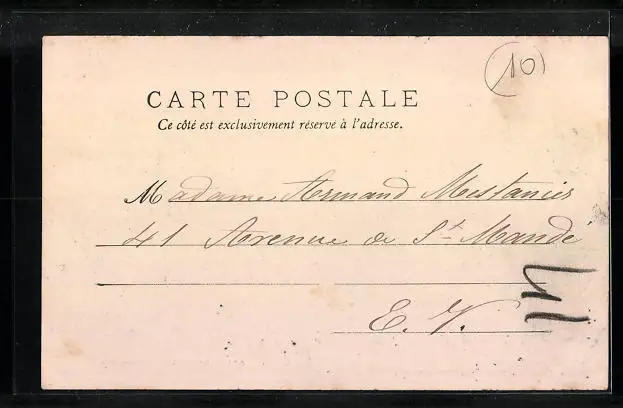 10
CARTE POSTALE
Ce côté est exclusivement réservé à l'adresse.
Madame Armand Mestanier
41 Avenue de St Mandé
E. V.